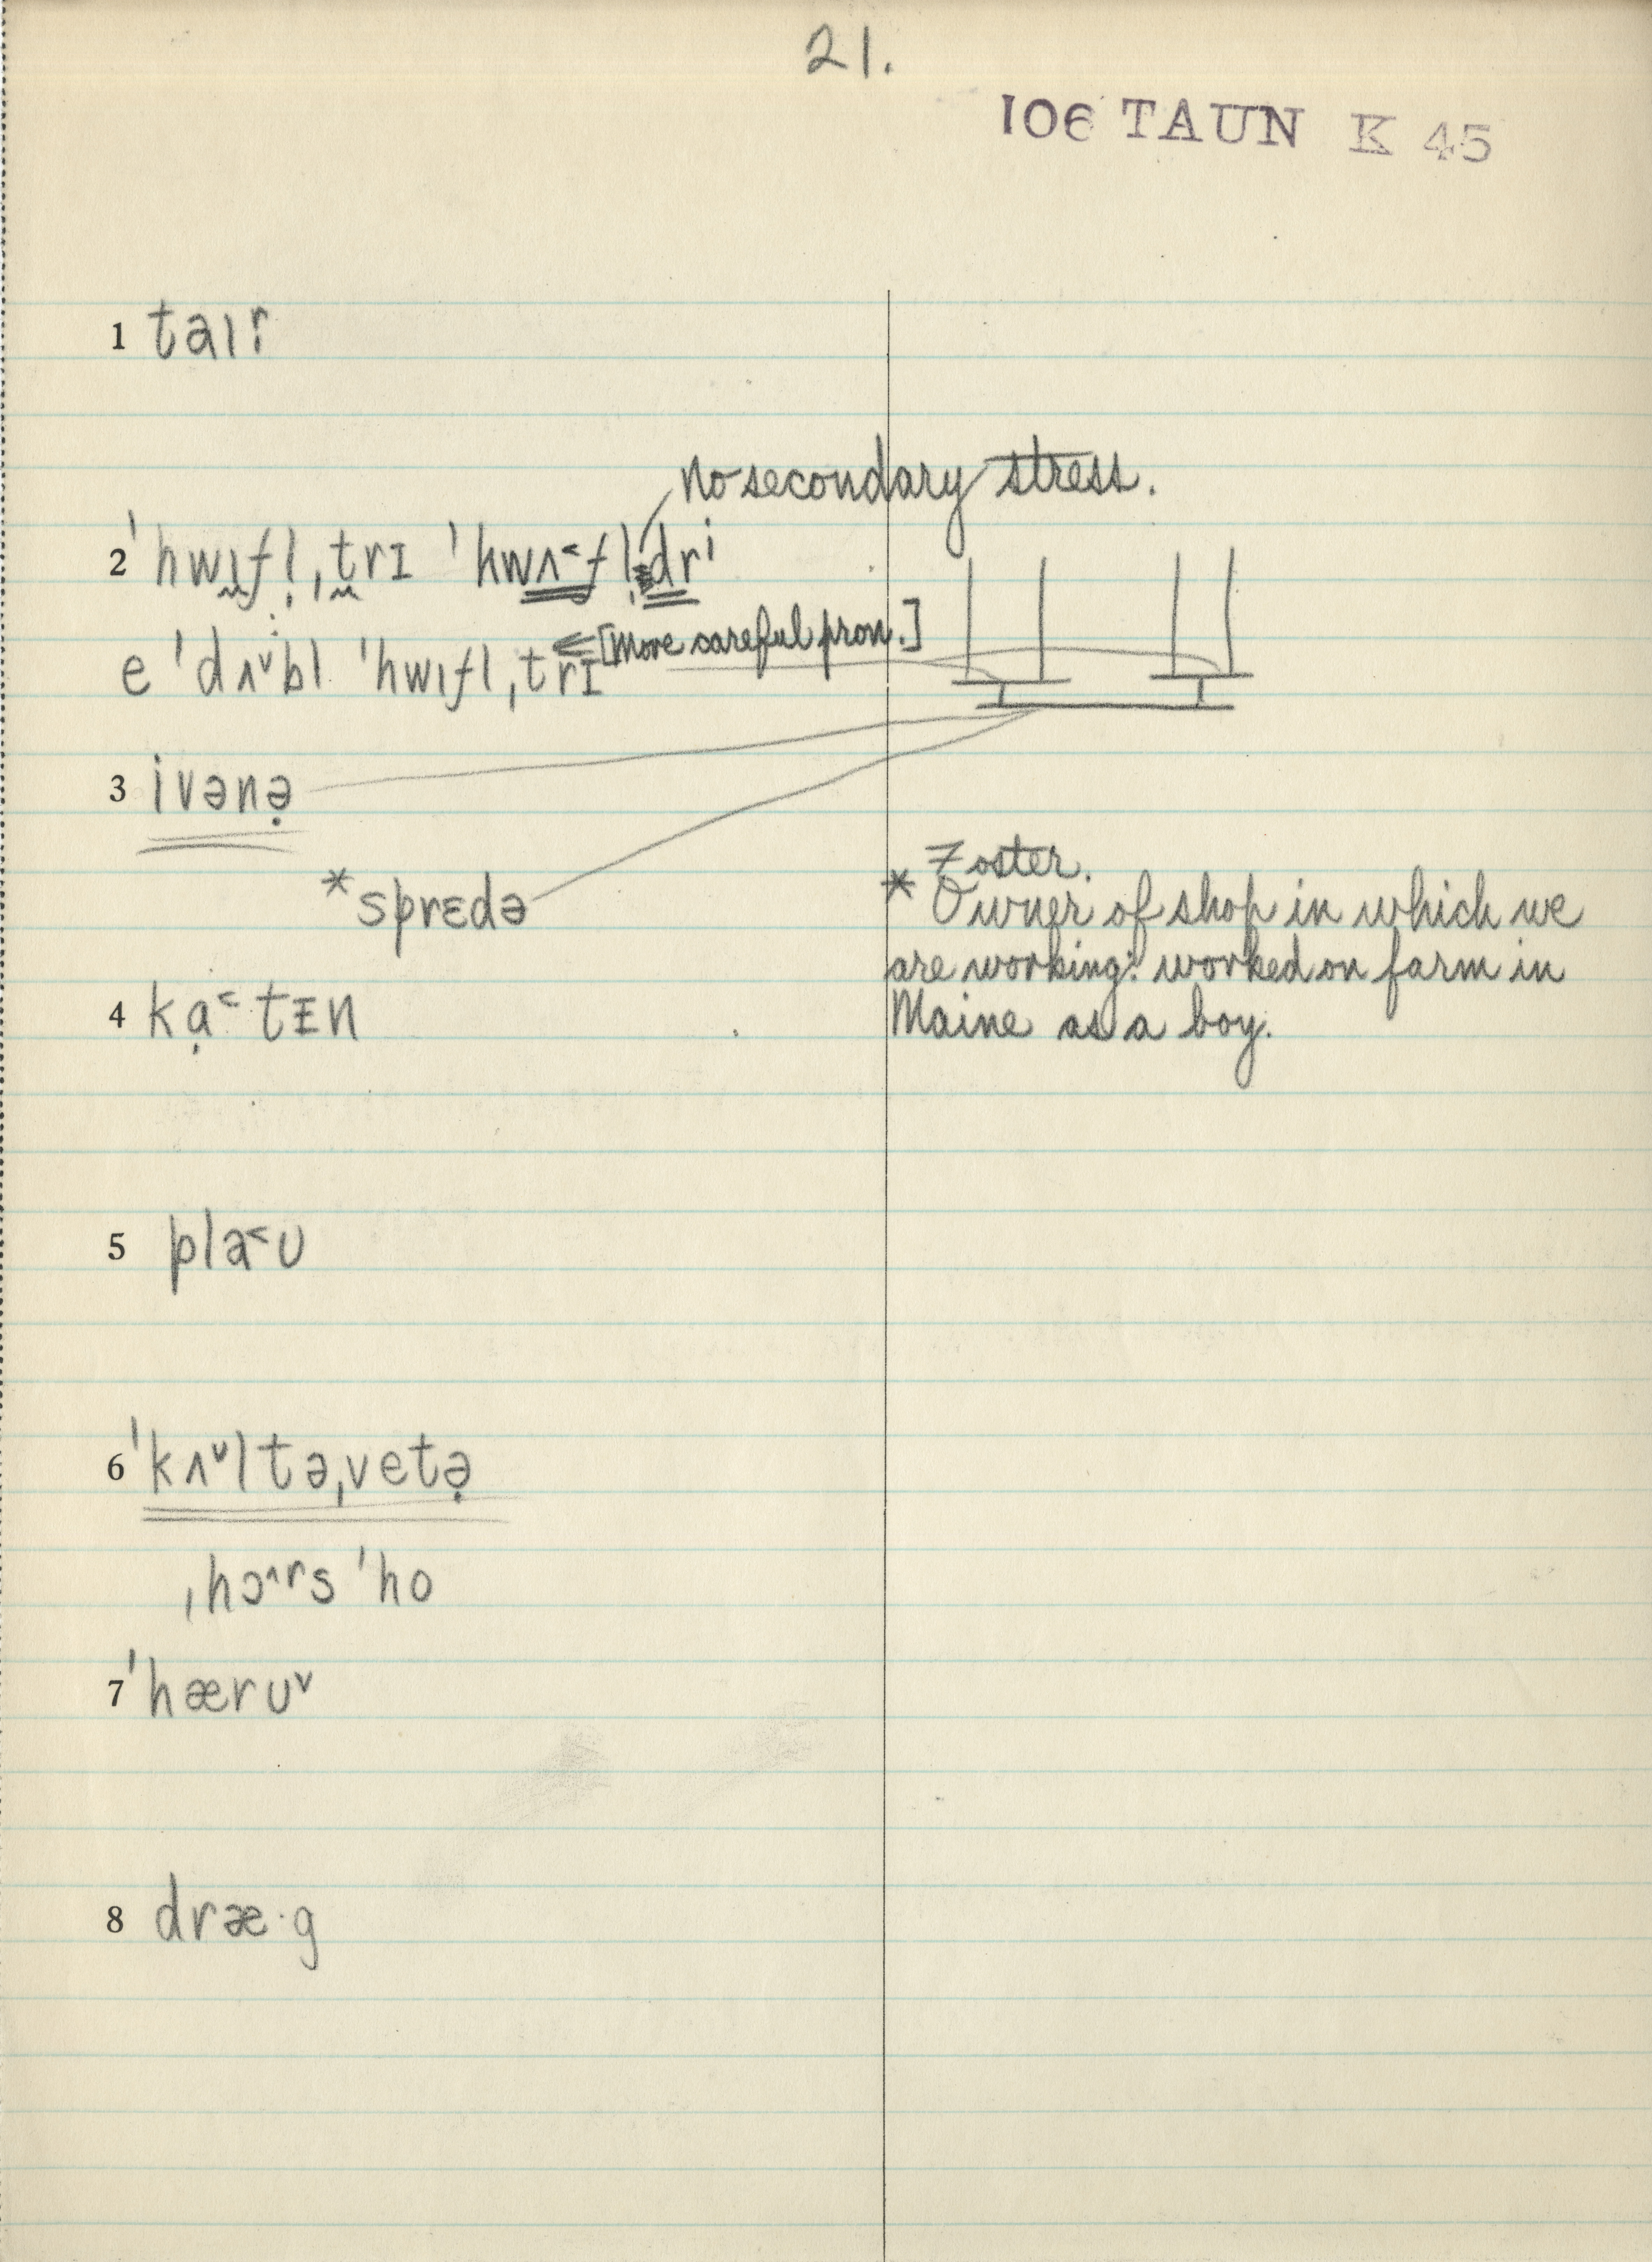 21.
106 TAUN K 45
1 taɪr
no secondary stress.
2 ˈhwɪfl̩ˌtrɪ ˈhwʌ˂fl̩dri
[More careful pron.]
e ˈdʌ˅bl ˈhwɪflˌtrɪ
3 ivənə̣
*sprɛdə
* Foster.
Owner of shop in which we
are working: worked on farm in
Maine as a boy.
4 kạ˂tɪn
5 pla˂ʊ
6 ˈkʌ˅ltəˌvetə̣
ˌhɔ˄rs ˈho
7 ˈhærʊ˅
8 dræ·g